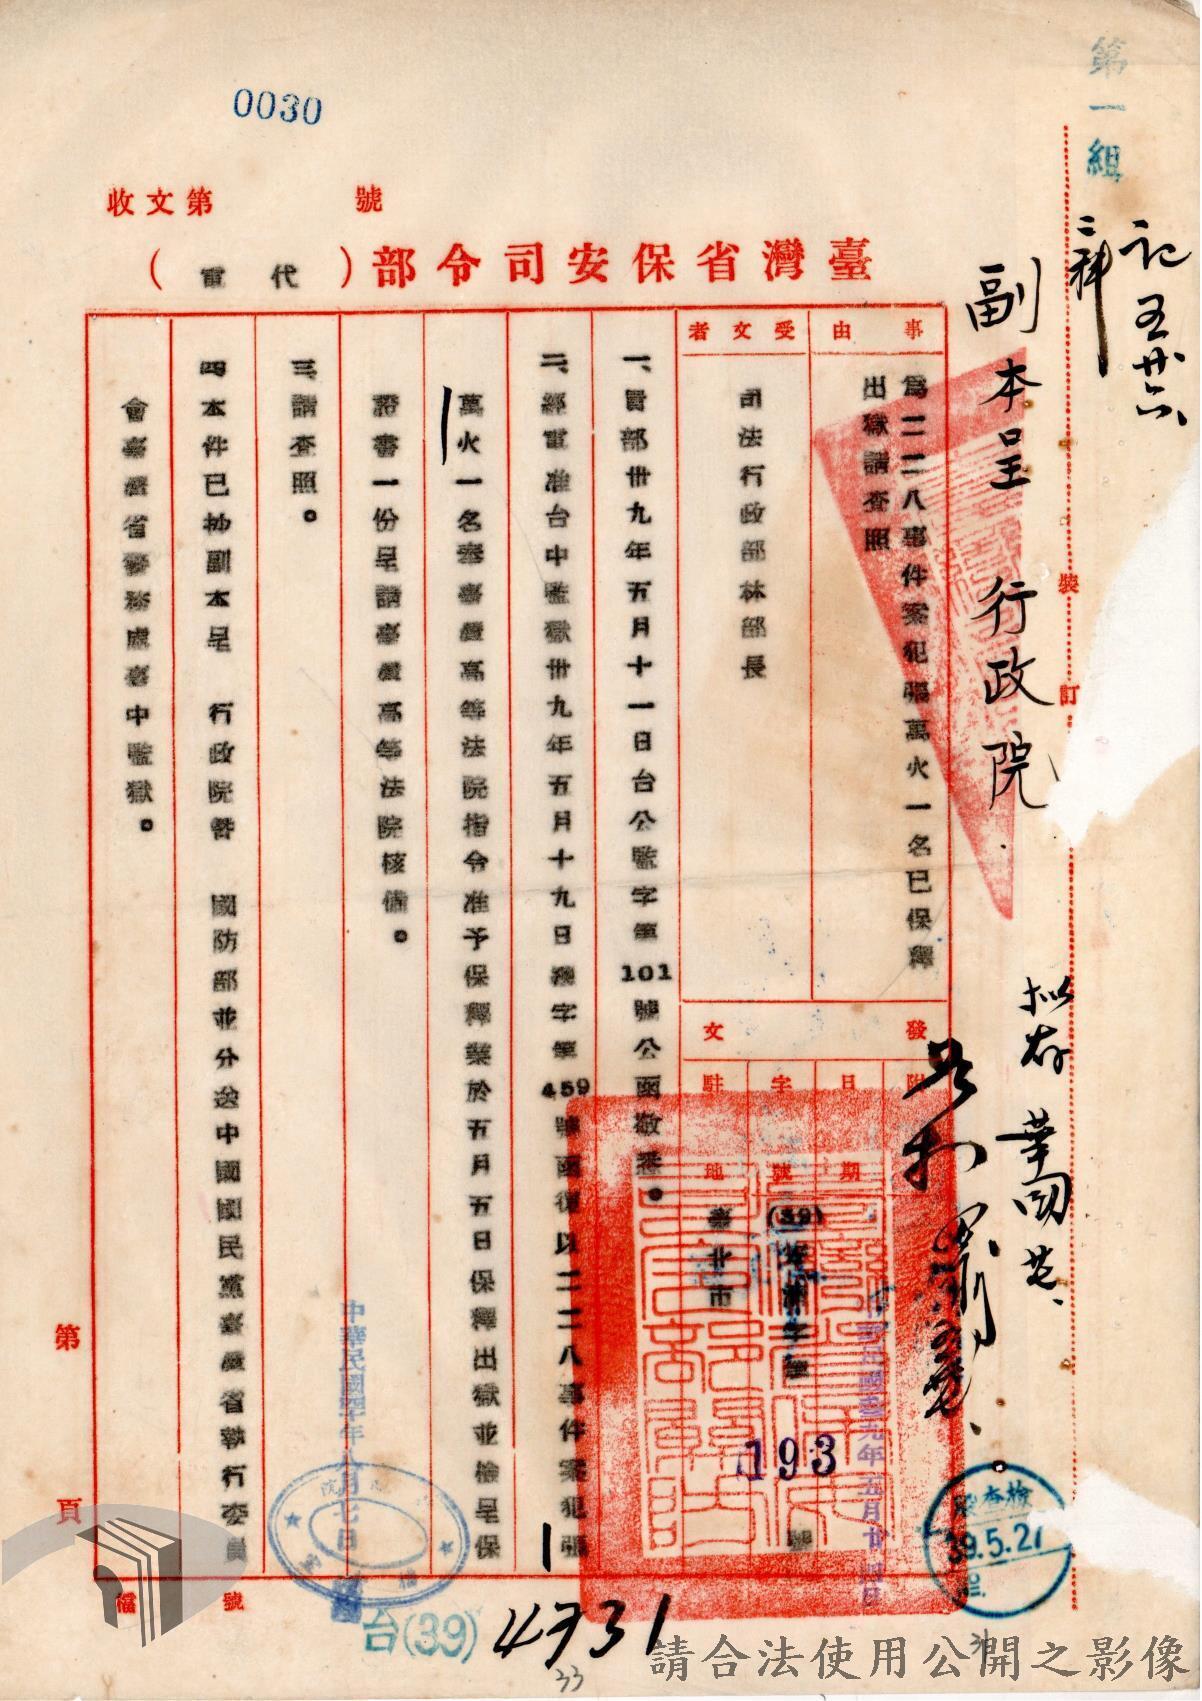 第一組
0030
收文第 號
臺灣省保安司令部(代電)
副本呈 行政院
事由
為二二八事件案犯張萬火一名已保釋
出獄請查照
受文者
司法行政部林部長
發文
附
日期
字號
駐地
(39)
193
號
臺北市
一、貴部卅九年五月十一日台公監字第101號公函敬悉。
二、經電准台中監獄卅九年五月十九日 字第459號函復以二二八事件案犯張
萬火一名奉臺灣高等法院指令准予保釋業於五月五日保釋出獄並檢呈保
證書一份呈請臺灣高等法院核備。
三、請查照。
四本件已抄副本呈 行政院暨 國防部並分送中國國民黨臺灣省執行委員
會臺灣省警務處臺中監獄。
裝
訂
第
頁
檢查
39.5.21
檔 號
台(39) 4731
33
請合法使用公開之影像